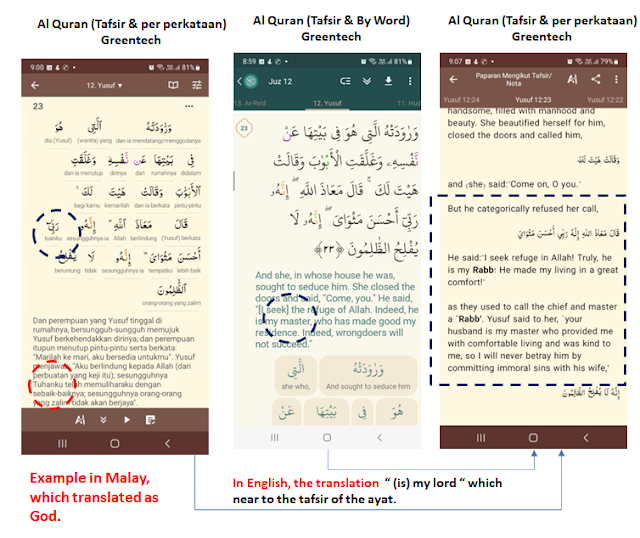 Al Quran (Tafsir & per perkataan)
Greentech
Al Quran (Tafsir & By Word)
Greentech
Al Quran (Tafsir & per perkataan)
Greentech
9:00
81%
12. Yusuf
23
وَرَٰوَدَتْهُ ٱلَّتِي هُوَ
dia (Yusuf) (wanita) yang dan ia mendatang/menggodanya
فِي بَيْتِهَا عَن نَفْسِهِۦ وَغَلَّقَتِ
dan ia menutup dirinya dari rumahnya didalam
ٱلْأَبْوَٰبَ وَقَالَتْ هَيْتَ لَكَ ۚ
bagi kamu kemarilah dan ia berkata pintu-pintu
قَالَ مَعَاذَ ٱللَّهِ ۖ إِنَّهُۥ رَبِّيٓ
tuanku sesungguhnya ia Allah berlindung (Yusuf) berkata
أَحْسَنَ مَثْوَايَ ۖ إِنَّهُۥ لَا يُفْلِحُ
beruntung tidak sesungguhnya ia tempatku lebih baik
ٱلظَّٰلِمُونَ
orang-orang yang zalim
Dan perempuan yang Yusuf tinggal di
rumahnya, bersungguh-sungguh memujuk
Yusuf berkehendakkan dirinya; dan perempuan
itupun menutup pintu-pintu serta berkata:
"Marilah ke mari, aku bersedia untukmu". Yusuf
menjawab: "Aku berlindung kepada Allah (dari
perbuatan yang keji itu); sesungguhnya
Tuhanku telah memuliharaku dengan
sebaik-baiknya; sesungguhnya orang-orang
yang zalim tidak akan berjaya".
8:59
81%
Juz 12
13. Ar-Ra'd 12. Yusuf 11. Hud
23
وَرَٰوَدَتْهُ ٱلَّتِي هُوَ فِي بَيْتِهَا عَنْ
نَّفْسِهِۦ وَغَلَّقَتِ ٱلْأَبْوَٰبَ وَقَالَتْ
هَيْتَ لَكَ ۚ قَالَ مَعَاذَ ٱللَّهِ ۖ إِنَّهُۥ
رَبِّيٓ أَحْسَنَ مَثْوَايَ ۖ إِنَّهُۥ لَا
يُفْلِحُ ٱلظَّٰلِمُونَ ﴿٢٣﴾
And she, in whose house he was,
sought to seduce him. She closed the
doors and said, "Come, you." He said,
"[I seek] the refuge of Allah. Indeed, he
is my master, who has made good my
residence. Indeed, wrongdoers will
not succeed."
ٱلَّتِي وَرَٰوَدَتْهُ
she who, And sought to seduce him
عَنْ بَيْتِهَا فِي هُوَ
9:07
79%
Paparan Mengikut Tafsir/
Nota
Yusuf 12:24 Yusuf 12:23 Yusuf 12:22
handsome, filled with manhood and
beauty. She beautified herself for him,
closed the doors and called him,
وَقَالَتْ هَيْتَ لَكَ
and (she) said:'Come on, O you.'
But he categorically refused her call,
قَالَ مَعَاذَ اللّهِ إِنَّهُ رَبِّي أَحْسَنَ مَثْوَايَ
He said:'I seek refuge in Allah! Truly, he
is my Rabb! He made my living in a great
comfort!'
as they used to call the chief and master
a `Rabb'. Yusuf said to her, `your
husband is my master who provided me
with comfortable living and was kind to
me, so I will never betray him by
committing immoral sins with his wife,'
إِنَّهُ لَا يُفْلِحُ الظَّالِمُونَ
Example in Malay,
which translated as
God.
In English, the translation “ (is) my lord “ which
near to the tafsir of the ayat.